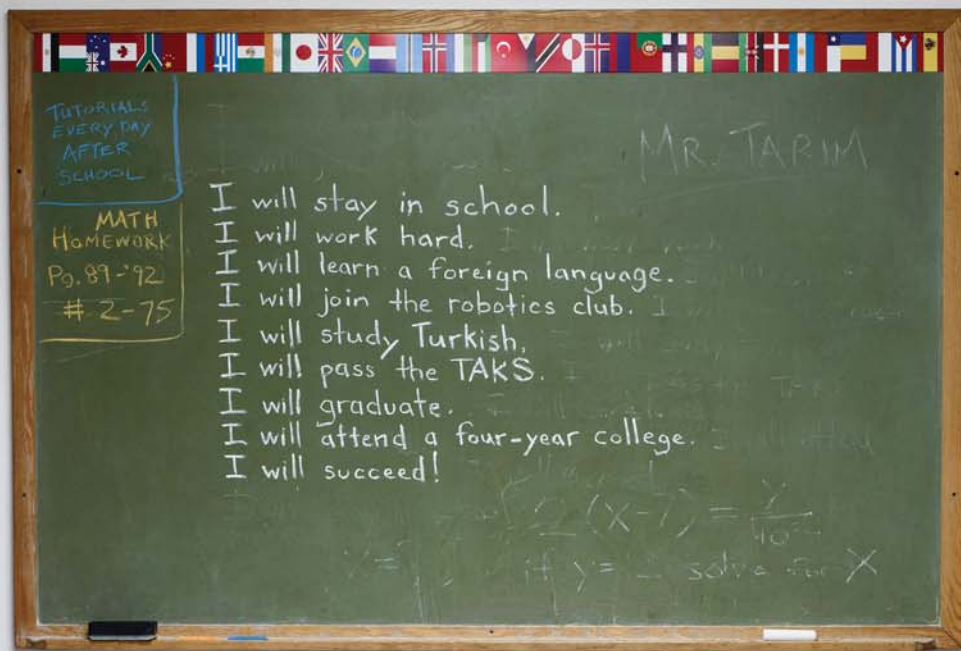 TUTORIALS
EVERY DAY
AFTER
SCHOOL
MATH
HOMEWORK
Pg. 89-'92
# 2-75
MR. TARIM
I will stay in school.
I will work hard.
I will learn a foreign language.
I will join the robotics club.
I will study Turkish.
I will pass the TAKS.
I will graduate.
I will attend a four-year college.
I will succeed!
(x-7) = y
if y= solve for X